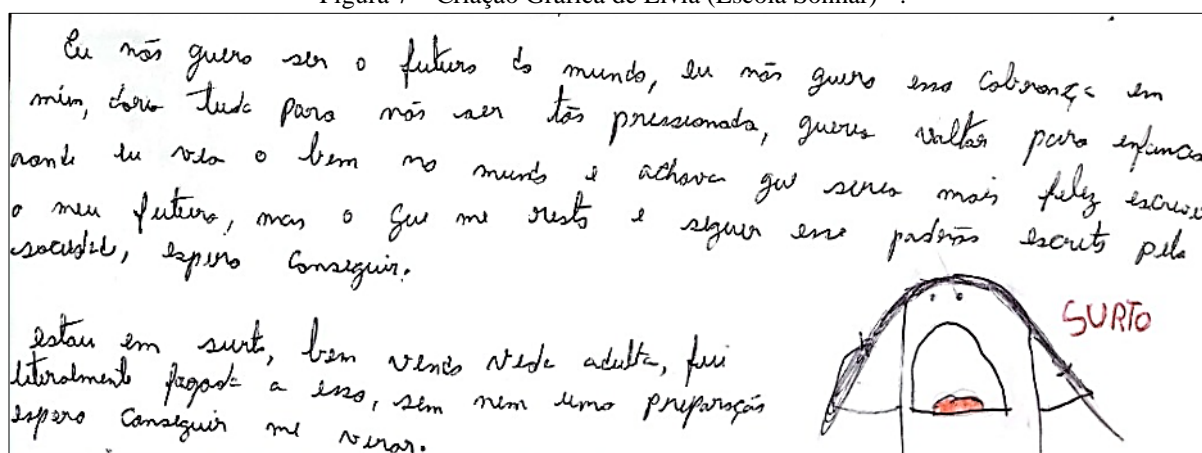 Eu não quero ser o futuro do mundo, eu não quero essa cobrança em
mim, daria tudo para não ser tão pressionada, queria voltar para enfancia
aonde eu via o bem no mundo e achava que seria mais feliz
o meu futuro, mas o que me resta e seguir esse padrão escrito pela
sociedade, espero conseguir.
SURTO
estou em surto, bem vindo vida adulta, fui
literalmente a isso, sem nem uma preparação
espero conseguir me virar.